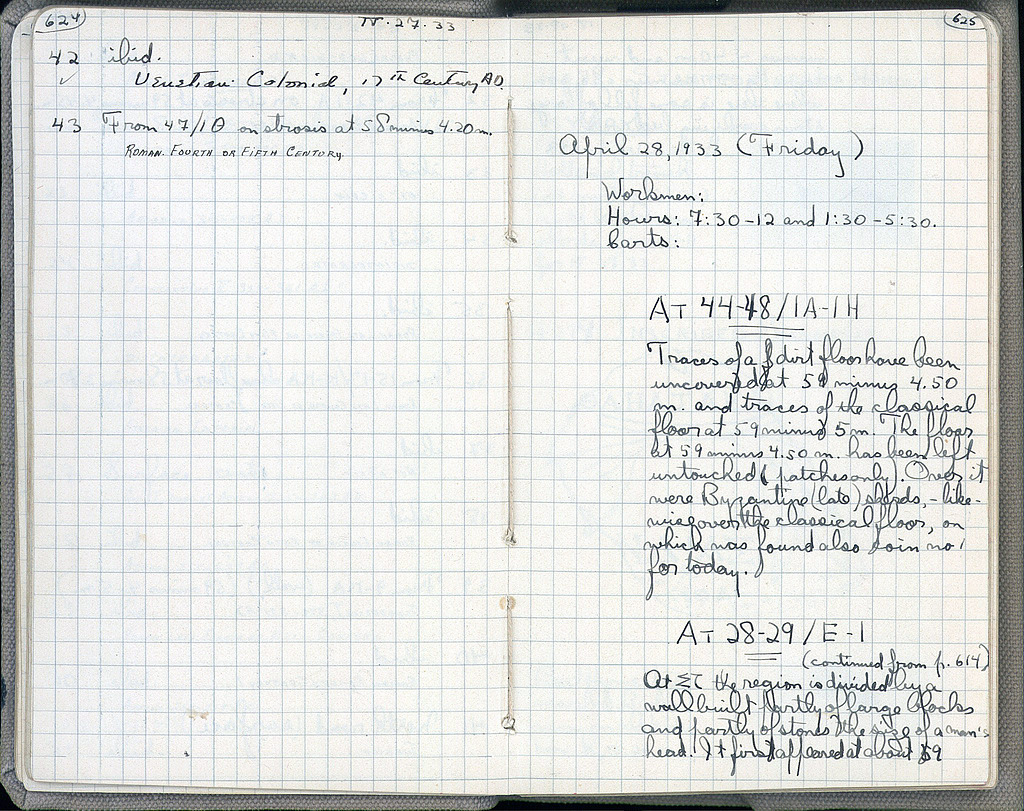 624
IV·27·33
42 ibid.
✓ Venetian Colonial, 17th Century AD.
43 From 47/ΙΘ on strosis at 58 minus 4.20 m.
ROMAN. FOURTH OR FIFTH CENTURY.
625
April 28, 1933 (Friday)
Workmen:
Hours: 7:30-12 and 1:30-5:30.
Carts:
AT 44-48/IA-IH
Traces of a dirt floor have been
uncovered at 59 minus 4.50
m. and traces of the classical
floor at 59 minus 5 m. The floor
at 59 minus 4.50 m. has been left
untouched (patches only). Over it
were Byzantine (late) sherds, - like-
wise over the classical floor, on
which was found also coin no 1
for today.
AT 28-29/E-I
(continued from p. 614)
At ΣΤ the region is divided by a
wall built partly of large blocks
and partly of stones the size of a man's
head. It first appeared at about 59